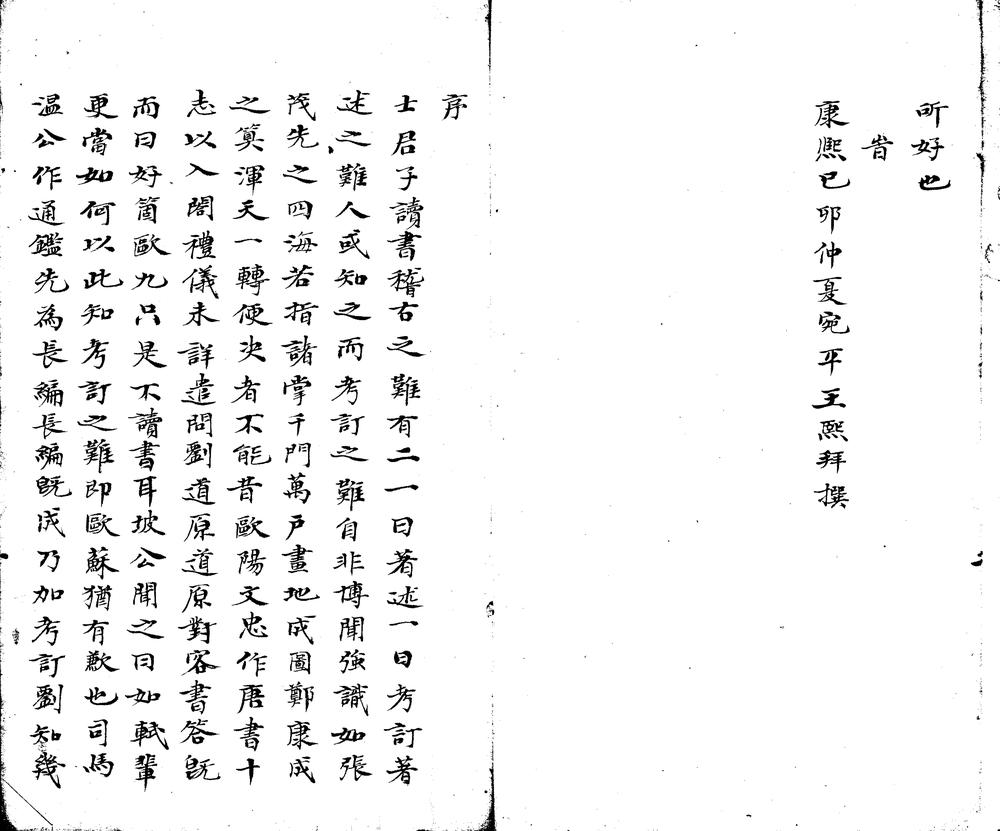 所好也
旹
康熙己卯仲夏宛平王熙拜撰
序
士君子讀書稽古之難有二一曰著述一曰考訂著
述之難人或知之而考訂之難自非博聞強識如張
茂先之四海若指諸掌千門萬戶畫地成圖鄭康成
之筭渾天一轉便決者不能昔歐陽文忠作唐書十
志以入閤禮儀未詳遣問劉道原道原對容書答旣
而曰好箇歐九只是不讀書耳坡公聞之曰如軾輩
更當如何以此知考訂之難即歐蘇猶有歉也司馬
温公作通鑑先為長編長編旣成乃加考訂劉知幾